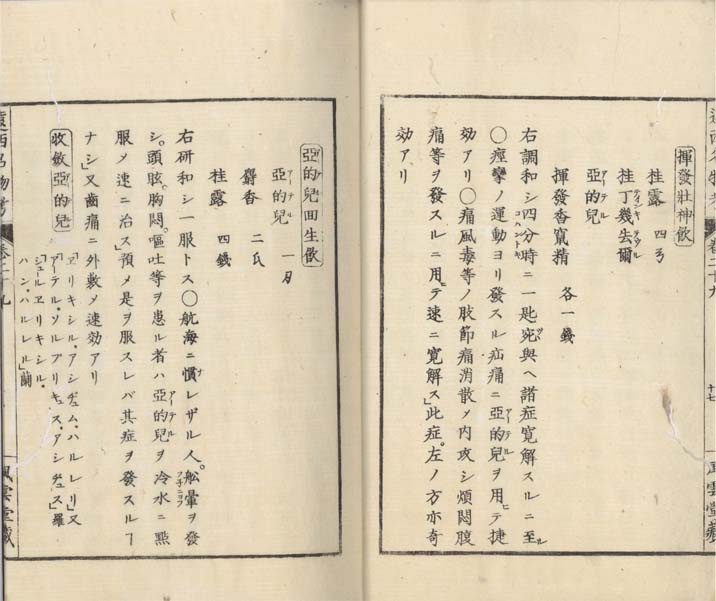 揮發壯神飮
桂露 四弓
桂丁幾去爾
亞的兒
揮發香竄精 各一錢
右調和シ四分時ニ一匙宛與ヘ諸症寛解スルニ至ル
○痙攣ノ運動ヨリ發スル疝痛ニ亞的兒ヲ用ヒテ捷
効アリ○痛風毒等ノ肢節痛消散メ内攻シ煩悶腹
痛等ヲ發スルニ用ヒテ速ニ寛解ス」此症左ノ方亦奇
効アリ
十七
風雲堂藏
亞的兒回生飮
亞的兒 一刃
麝香 二氏
桂露 四錢
右研和シ一服トス○航海ニ慣レザル人。舩暈ヲ發
シ。頭眩。胸悶。嘔吐等ヲ患ル者ハ亞的兒ヲ冷水ニ點
服メ速ニ治ス」預メ是ヲ服スレバ其症ヲ發スルヿ
ナシ」又齒痛ニ外敷メ速効アリ
收斂亞的兒
「ヱリキシル・アシヂュム・ハルレリ」又
「アーテル・ソルプリキュス・アシヂュス」羅
「シュールヱリキシル・
ハン・ハルレル」蘭
遠西名物考 卷二十九
風雲堂藏